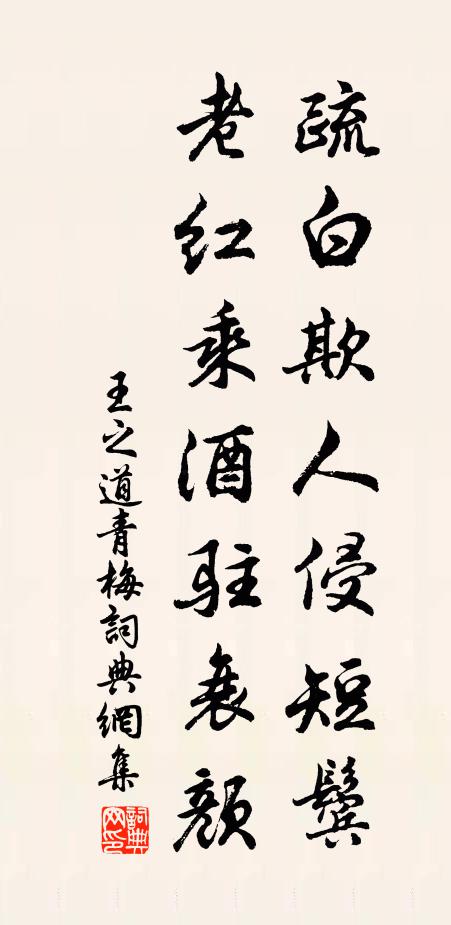 疏白欺人侵短鬓
老红乘酒驻衰颜
王之道青梅詞典網集
詞典
网印